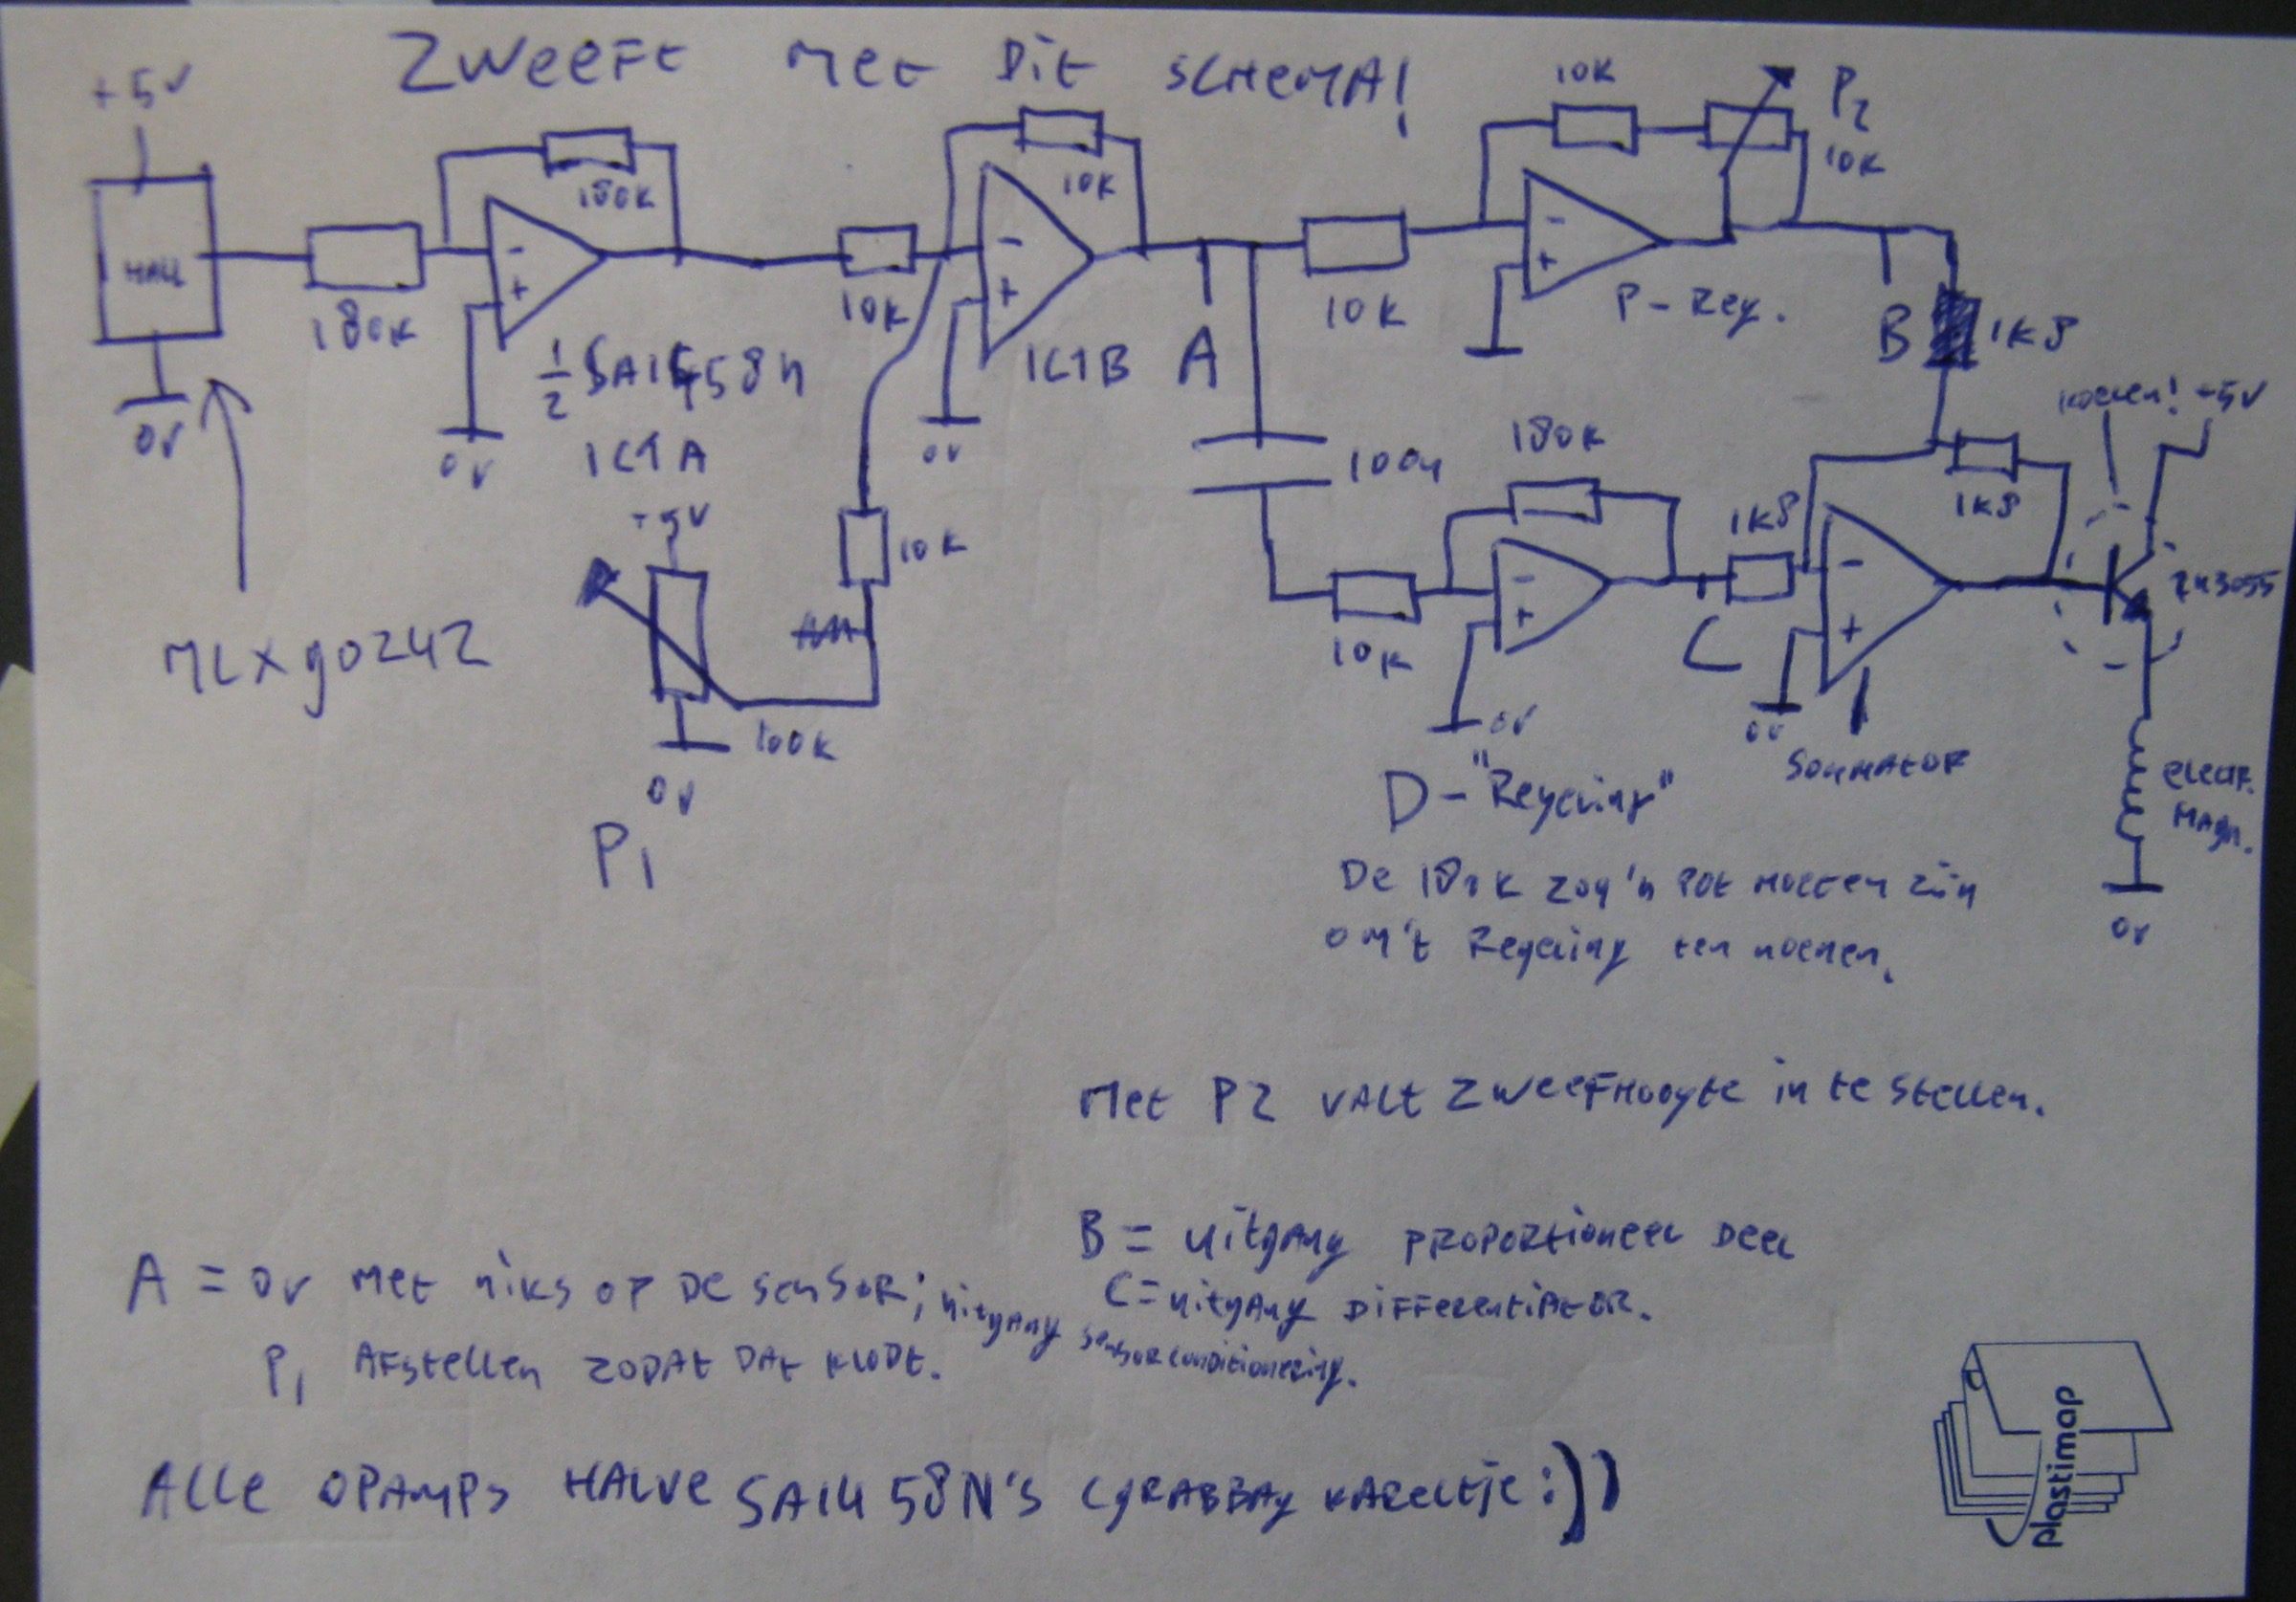 Zweeft met dit schema!
+5V
HALL
0V
MLX90242
180K
180K
½ SA1458N
IC1A
0V
10K
10K
IC1B
0V
A
10K
100K
0V
P1
10K
10K
P2
10K
P-Reg.
B
1K8
100n
10K
180K
0V
C
1K8
1K8
0V
Sommator
koelen!
+5V
2N3055
electr.
magn.
0V
D-"Regeling"
De 180K zou 'n pot moeten zijn
om 't regeling te noemen.
Met P2 valt zweefhoogte in te stellen.
B = uitgang proportioneel deel
C = uitgang differentiator.
A = 0V met niks op de sensor; uitgang sensorconditionering.
P1 afstellen zodat dat klopt.
Alle opamps halve SA1458N's (grabbag kareltje :))
plastimap